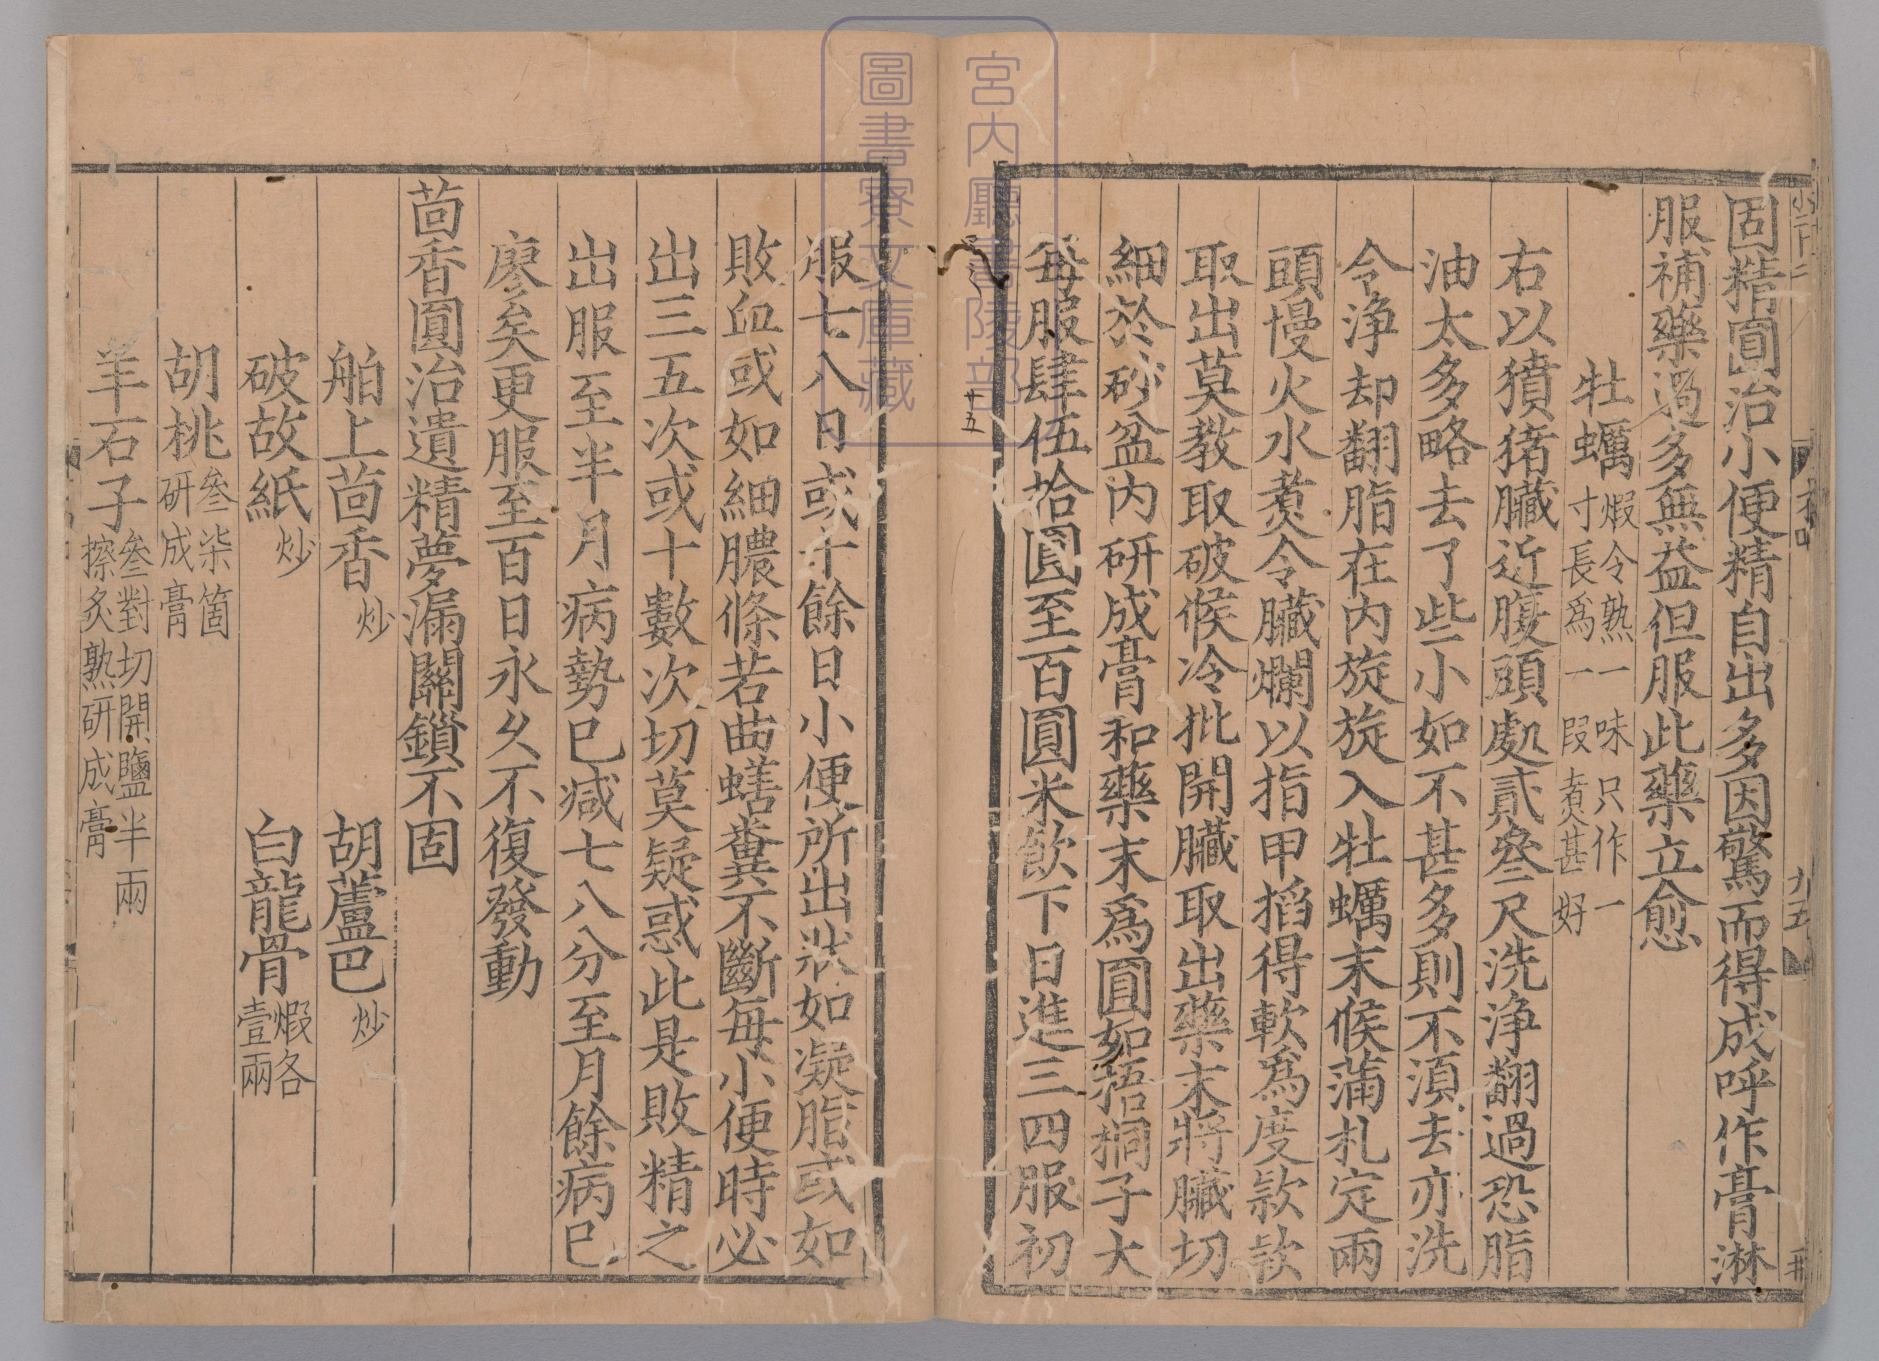 固精圓治小便精自出多因驚而得成呼作膏淋
服補藥過多無益但服此藥立愈
牡蠣煅令熟一味只作一
寸長爲一叚煮甚好
右以獖猪臟近腹頭處貳叄尺洗浄翻過恐脂
油太多略去了些小如不甚多則不湏去亦洗
令浄却翻脂在内旋旋入牡蠣末候蒲札定兩
頭慢火水煮令臟爛以指甲搯得軟爲度欵欵
取出莫教取破候冷批開臟取出藥末將臟切
細於砂盆内研成膏和藥末爲圓如梧桐子大
每服肆伍拾圓至百圓米飲下日進三四服初
服七八日或十餘日小便所出狀如凝脂或如
敗血或如細膿條若曲蟮糞不斷每小便時必
出三五次或十數次切莫疑惑此是敗精之
出服至半月病勢已减七八分至月餘病已
廖矣更服至百日永久不復發動
茴香圓治遺精夢漏關鎖不固
舶上茴香炒 胡蘆巴炒
破故紙炒 白龍骨煅各
壹兩
胡桃叄柒箇
研成膏
羊石子叄對切開鹽半兩
擦炙熟研成膏
宮内廳書陵部
圖書寮文庫藏
廿五